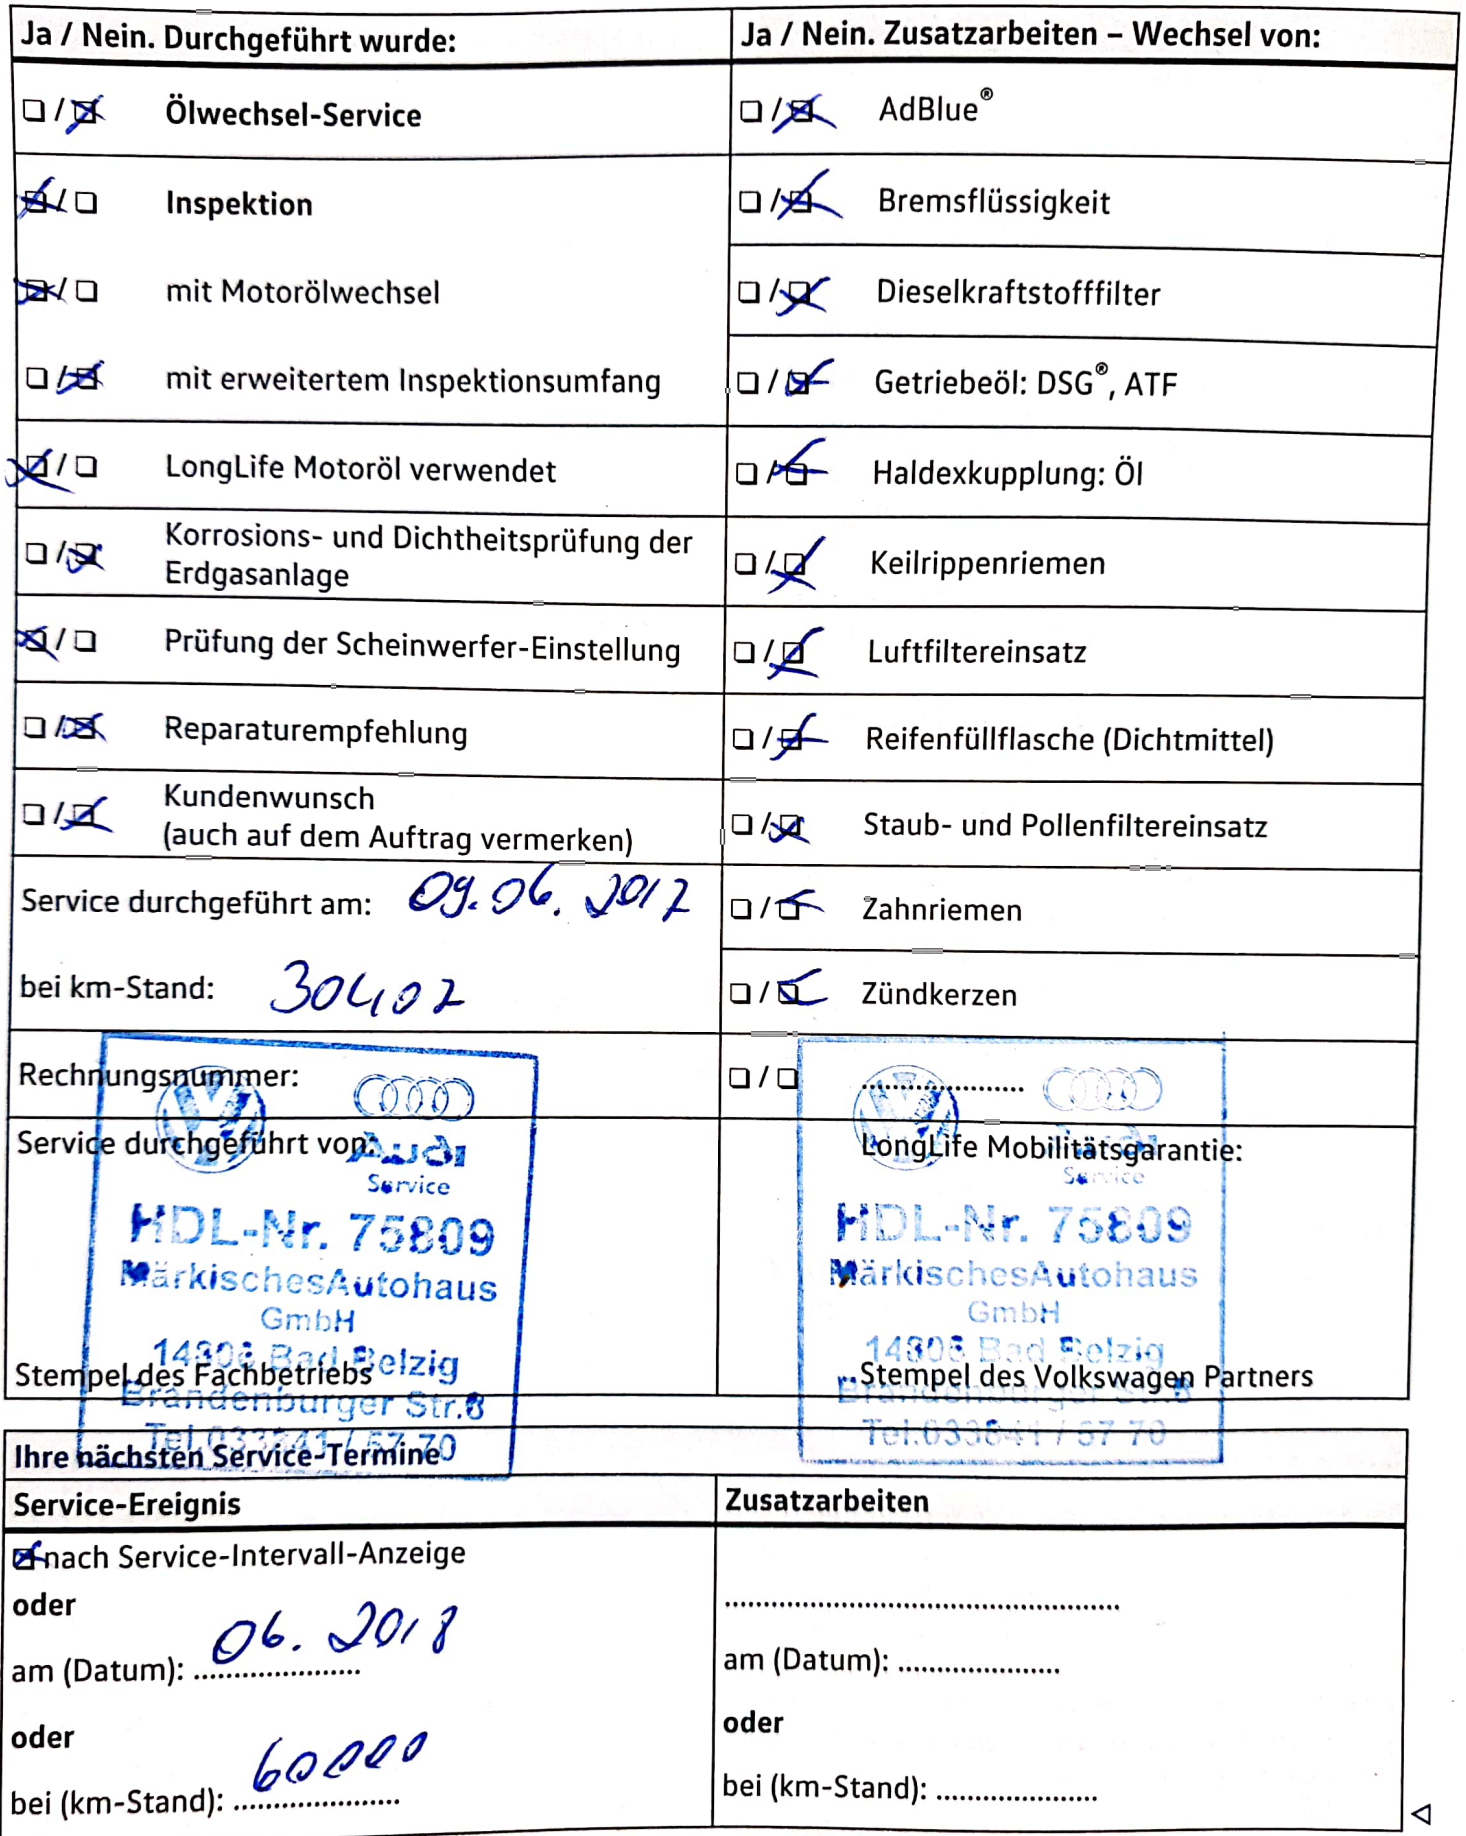 Ja / Nein. Durchgeführt wurde:
☐ / ☒ Ölwechsel-Service
☒ / ☐ Inspektion
☒ / ☐ mit Motorölwechsel
☐ / ☒ mit erweitertem Inspektionsumfang
☒ / ☐ LongLife Motoröl verwendet
☐ / ☒ Korrosions- und Dichtheitsprüfung der
Erdgasanlage
☒ / ☐ Prüfung der Scheinwerfer-Einstellung
☐ / ☒ Reparaturempfehlung
☐ / ☒ Kundenwunsch
(auch auf dem Auftrag vermerken)
Service durchgeführt am: 09.06.2017
bei km-Stand: 30402
Rechnungsnummer:
Service durchgeführt von:
Audi
Service
HDL-Nr. 75809
MärkischesAutohaus
GmbH
14806 Bad Belzig
Brandenburger Str.8
Tel.033841 / 57 70
Stempel des Fachbetriebs
Ja / Nein. Zusatzarbeiten – Wechsel von:
☐ / ☒ AdBlue®
☐ / ☒ Bremsflüssigkeit
☐ / ☒ Dieselkraftstofffilter
☐ / ☒ Getriebeöl: DSG®, ATF
☐ / ☒ Haldexkupplung: Öl
☐ / ☒ Keilrippenriemen
☐ / ☒ Luftfiltereinsatz
☐ / ☒ Reifenfüllflasche (Dichtmittel)
☐ / ☒ Staub- und Pollenfiltereinsatz
☐ / ☒ Zahnriemen
☐ / ☒ Zündkerzen
☐ / ☐ ......................
LongLife Mobilitätsgarantie:
Audi
Service
HDL-Nr. 75809
MärkischesAutohaus
GmbH
14806 Bad Belzig
Brandenburger Str.8
Tel.033841 / 57 70
Stempel des Volkswagen Partners
Ihre nächsten Service-Termine
Service-Ereignis
☒ nach Service-Intervall-Anzeige
oder
am (Datum): 06.2018
oder
bei (km-Stand): 60000
Zusatzarbeiten
......................................................
am (Datum): ......................
oder
bei (km-Stand): ......................